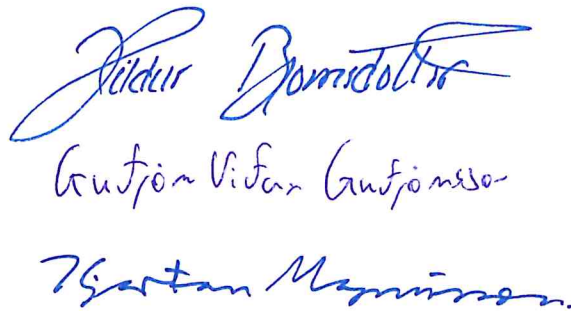 Hildur Björnsdóttir
Guðjón Viðar Guðjónsson
Kjartan Magnússon.